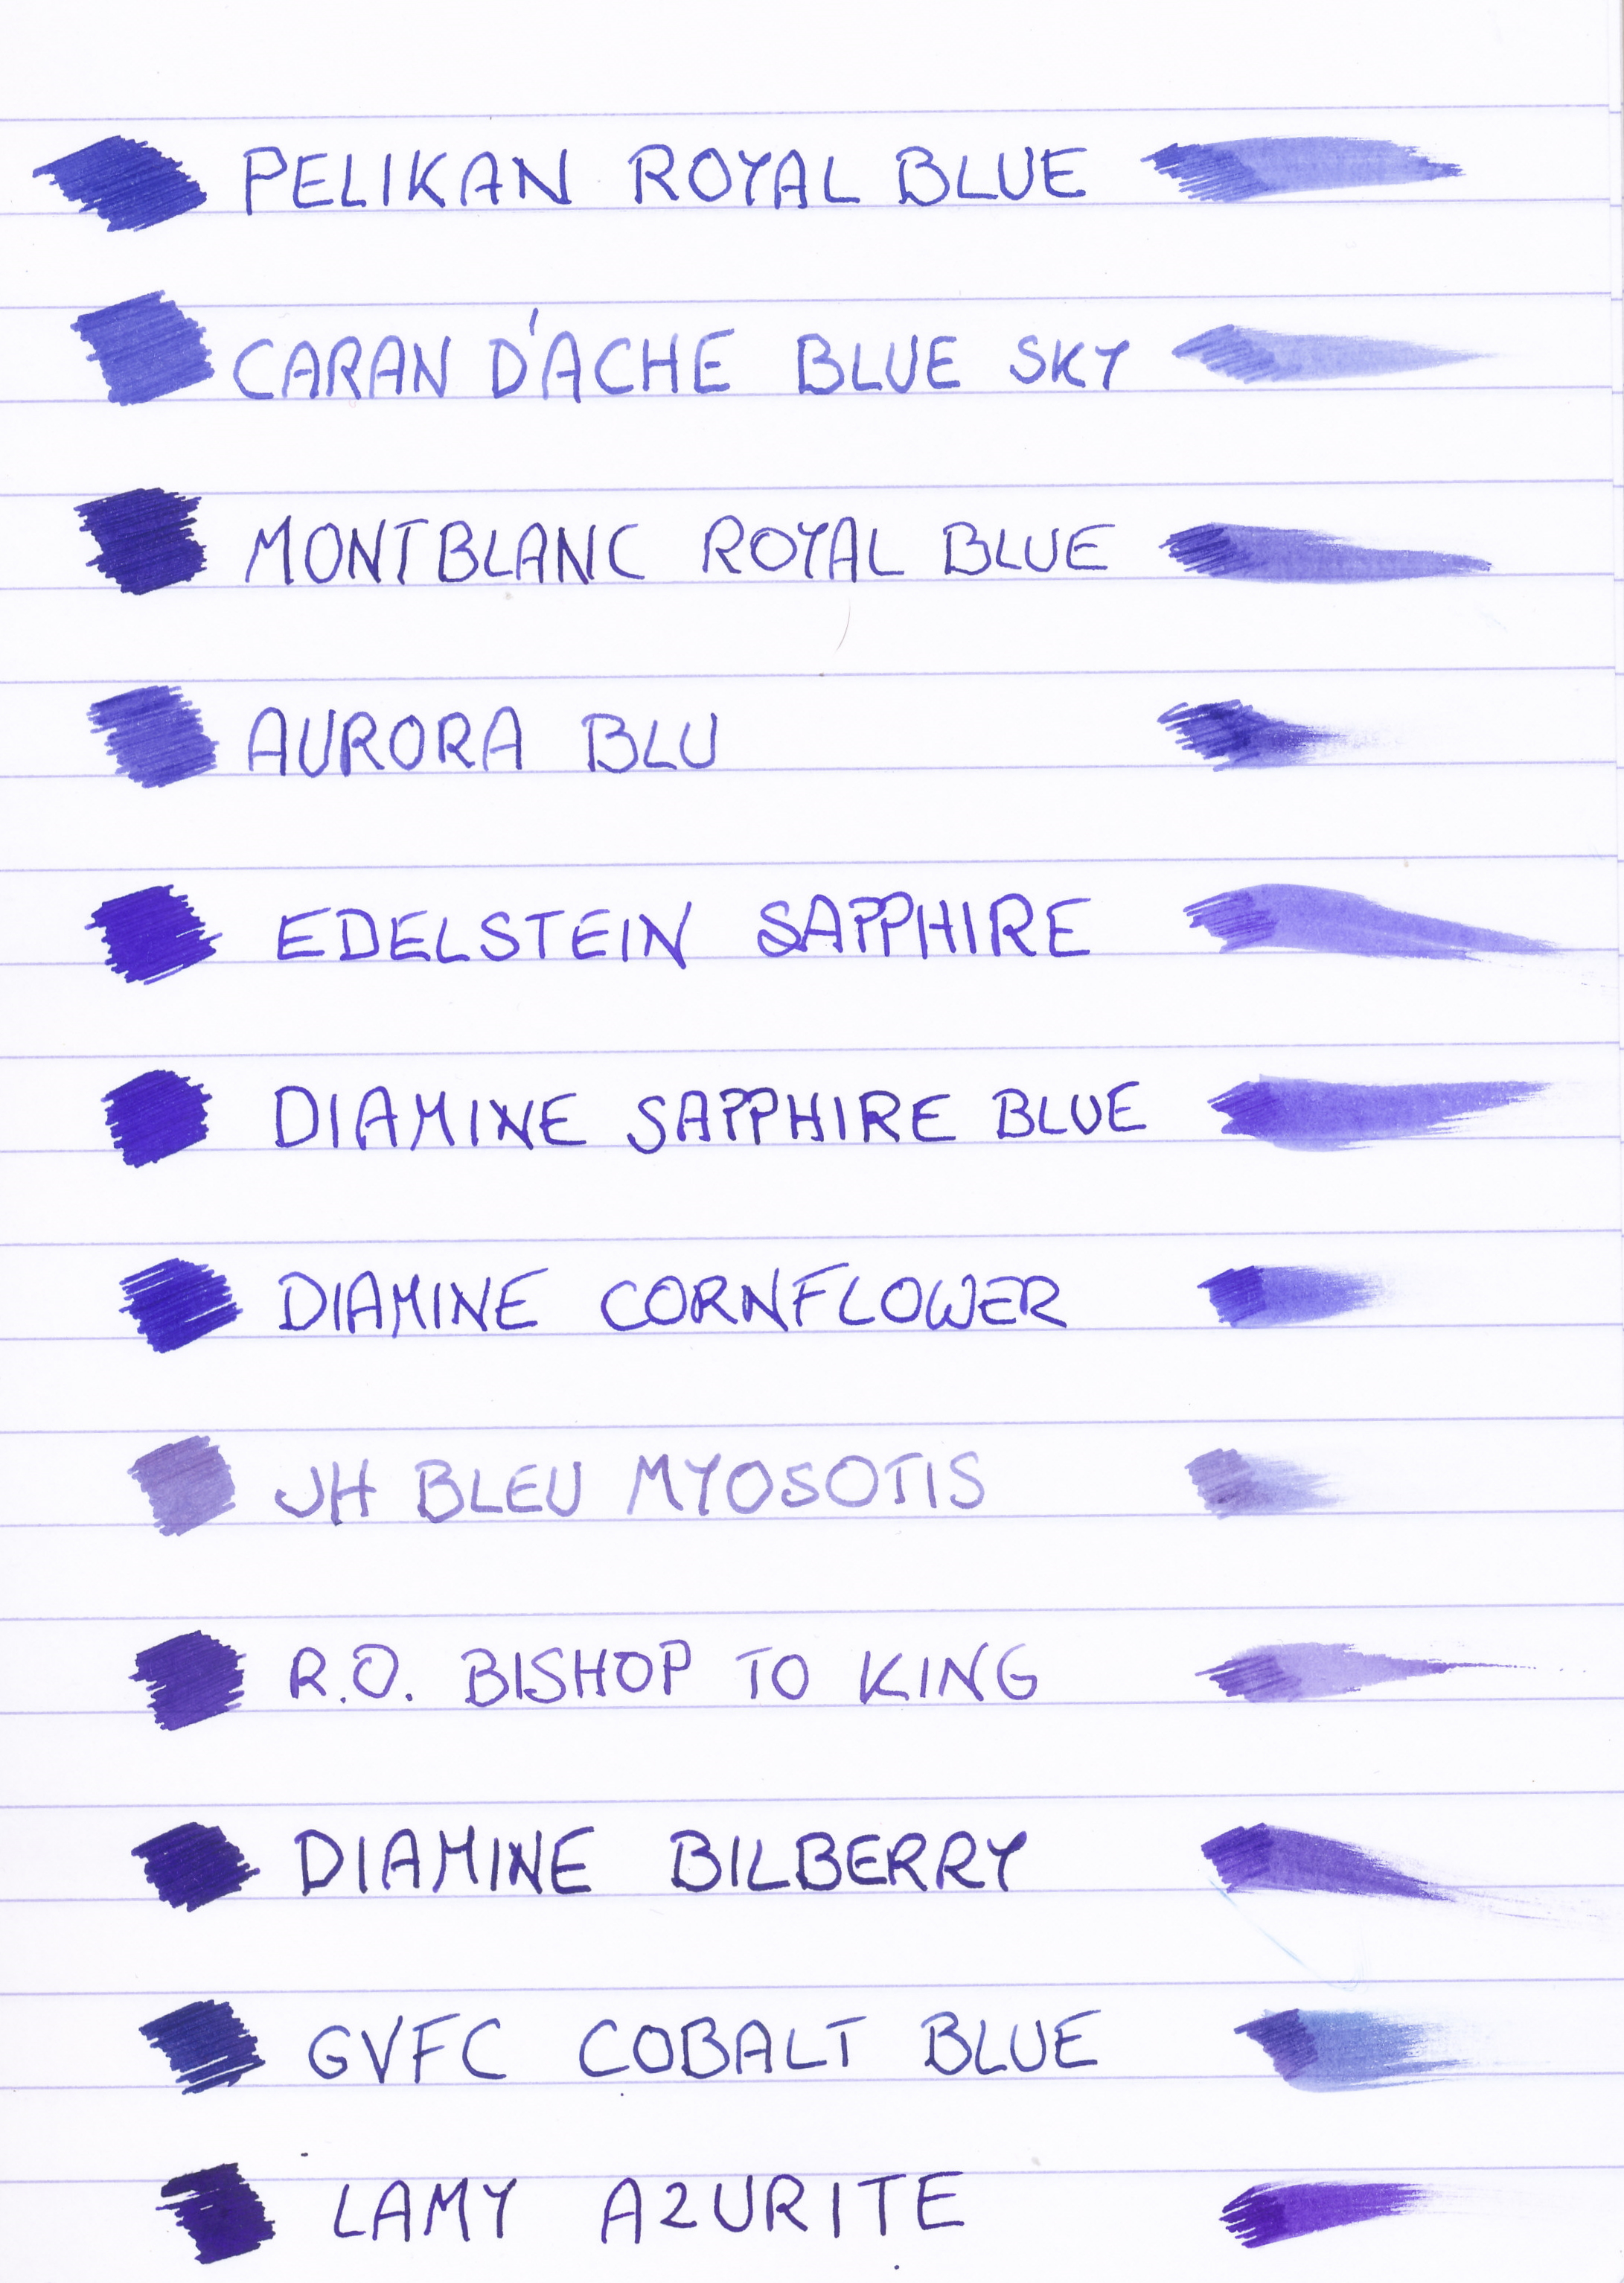 PELIKAN ROYAL BLUE
CARAN D'ACHE BLUE SKY
MONTBLANC ROYAL BLUE
AURORA BLU
EDELSTEIN SAPPHIRE
DIAMINE SAPPHIRE BLUE
DIAMINE CORNFLOWER
JH BLEU MYOSOTIS
R.O. BISHOP TO KING
DIAMINE BILBERRY
GVFC COBALT BLUE
LAMY AZURITE